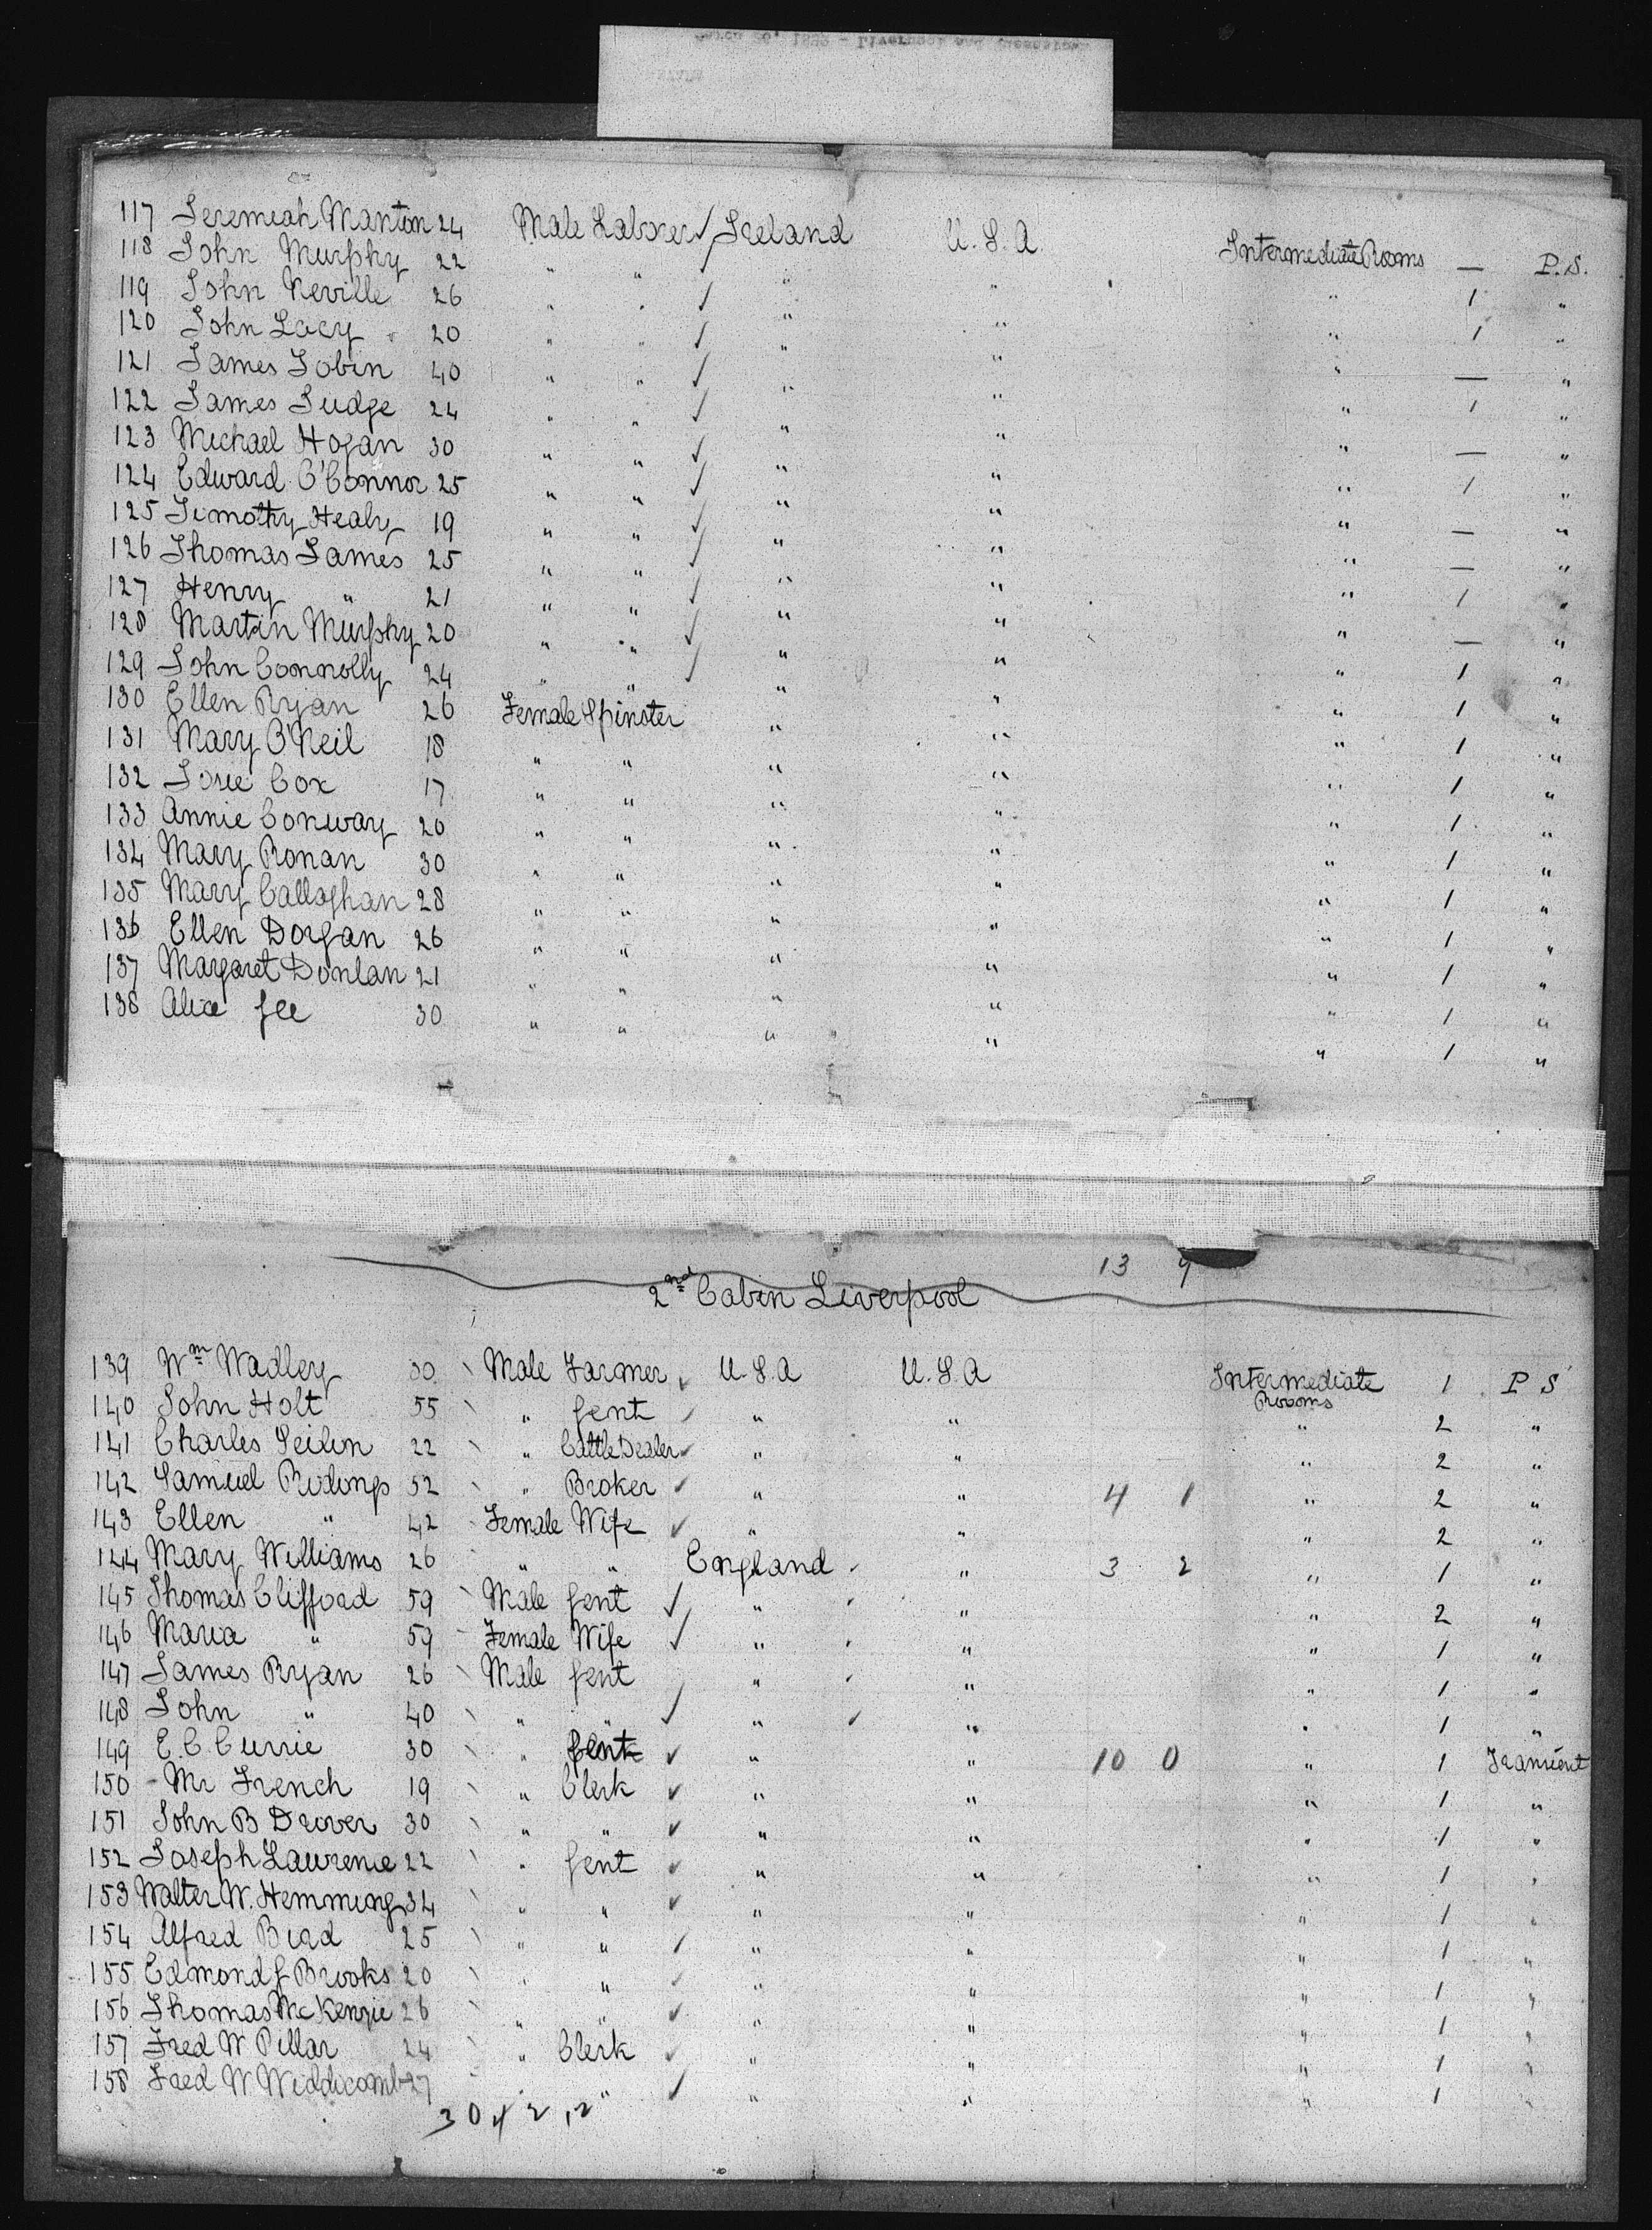 117 Jeremiah Manton 24 Male Laborer ✓ Ireland U.S.A. Intermediate Rooms — P.S.
118 John Murphy 22 " " ✓ " " " 1 "
119 John Neville 26 " " ✓ " " " 1 "
120 John Lacy 20 " " ✓ " " " — "
121 James Tobin 40 " " ✓ " " " 1 "
122 James Judge 24 " " ✓ " " " — "
123 Michael Hogan 30 " " ✓ " " " 1 "
124 Edward O'Connor 25 " " ✓ " " " — "
125 Timothy Healy 19 " " ✓ " " " — "
126 Thomas James 25 " " ✓ " " " 1 "
127 Henry " 21 " " ✓ " " " — "
128 Martin Murphy 20 " " ✓ " " " 1 "
129 John Connolly 24 " " ✓ " " " 1 "
130 Ellen Ryan 26 Female Spinster " " " 1 "
131 Mary O'Neil 18 " " " " " 1 "
132 Josie Cox 17 " " " " " 1 "
133 Annie Conway 20 " " " " " 1 "
134 Mary Ronan 30 " " " " " 1 "
135 Mary Callaghan 28 " " " " " 1 "
136 Ellen Dorgan 26 " " " " " 1 "
137 Margaret Donlan 21 " " " " " 1 "
138 Alice Gee 30 " " " " " 1 "
13 9
2nd Cabin Liverpool
139 Wm Wadley 30 Male Farmer ✓ U.S.A U.S.A Intermediate Rooms 1 P S
140 John Holt 55 " Gent ✓ " " " 2 "
141 Charles Seilin 22 " Cattle Dealer ✓ " " " 2 "
142 Samuel Ridings 52 " Broker ✓ " " 4 1 " 2 "
143 Ellen " 42 Female Wife ✓ " " " 2 "
144 Mary Williams 26 " " England " 3 2 " 1 "
145 Thomas Clifford 59 Male Gent ✓ " " " 2 "
146 Maria " 59 Female Wife ✓ " " " 1 "
147 James Ryan 26 Male Gent " " " 1 "
148 John " 40 " " ✓ " " " 1 "
149 E. C. Currie 30 " Gent ✓ " " 10 0 " 1 Transient
150 Mr French 19 " Clerk ✓ " " " 1 "
151 John B Drover 30 " " ✓ " " " 1 "
152 Joseph Lawrence 22 " Gent ✓ " " " 1 "
153 Walter W. Hemming 34 " " ✓ " " " 1 "
154 Alfred Bird 25 " " ✓ " " " 1 "
155 Edmond G Brooks 20 " " ✓ " " " 1 "
156 Thomas McKenzie 26 " " ✓ " " " 1 "
157 Fred W Pillar 24 " Clerk ✓ " " " 1 "
158 Fred W Widdicomb 27 " " ✓ " " " 1 "
30 4 2 12